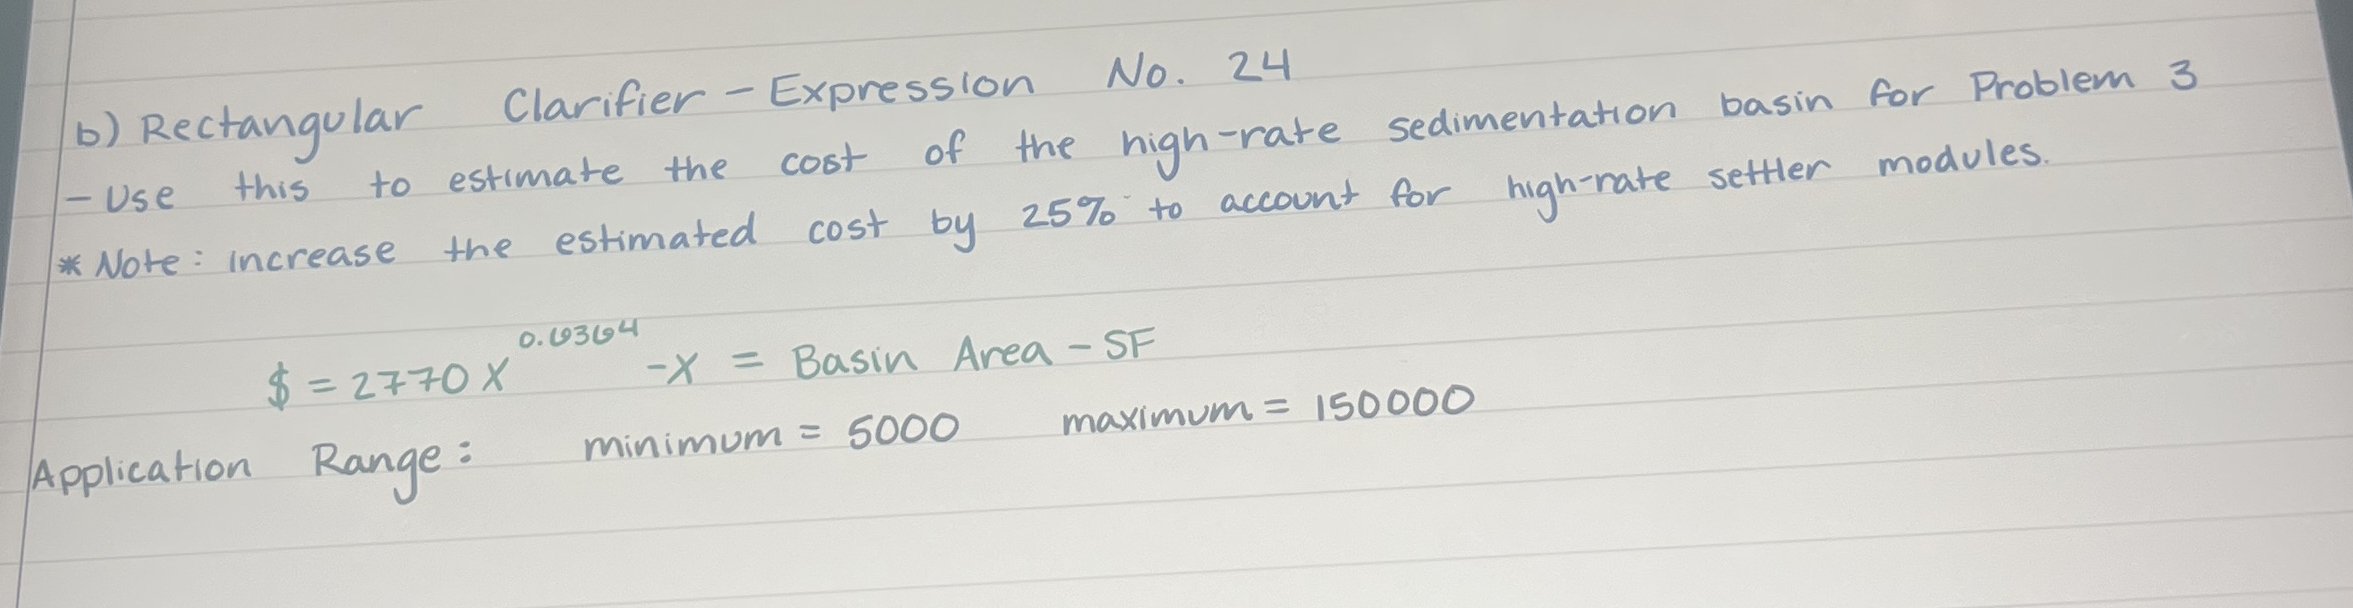 b) Rectangular Clarifier - Expression No. 24
- Use this to estimate the cost of the high-rate sedimentation basin for Problem 3
* Note: increase the estimated cost by 25% to account for high-rate settler modules.
$ = 2770 X^0.6364 - X = Basin Area - SF
Application Range: minimum = 5000 maximum = 150000